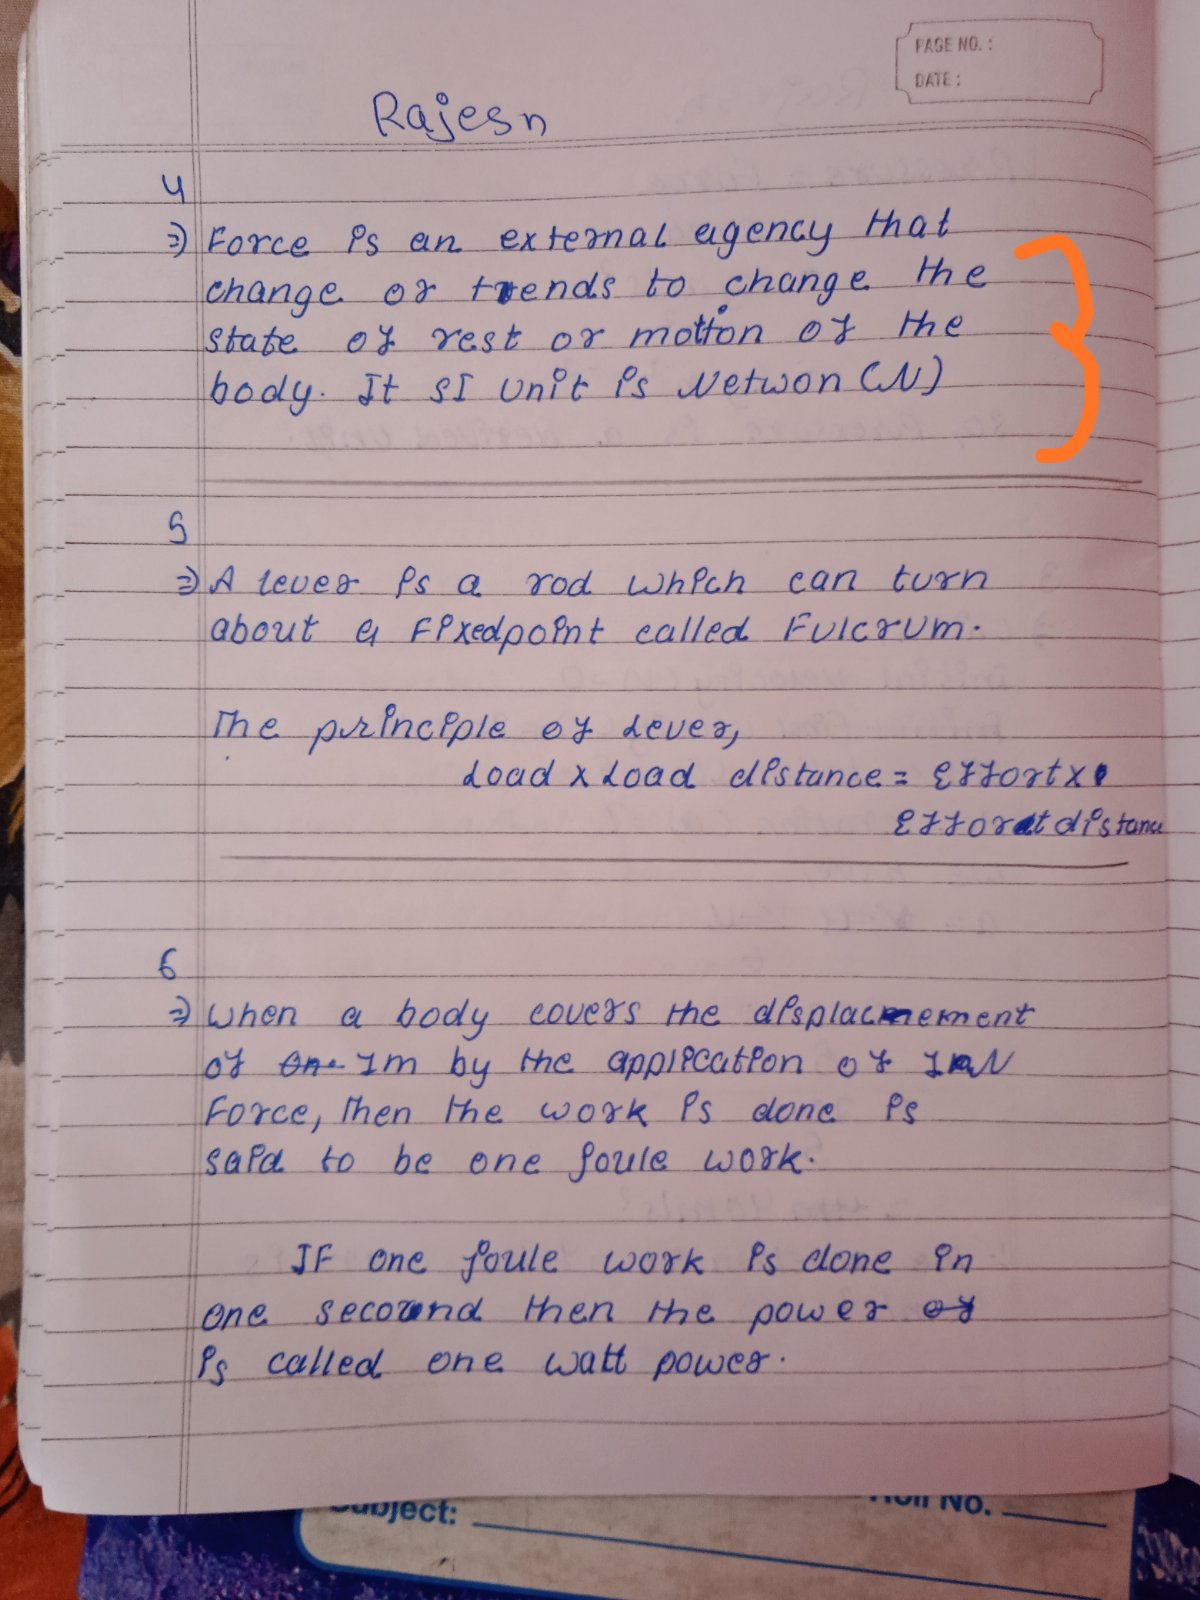 PAGE NO. :
DATE :
Rajesh
4
⇒ Force is an external agency that
change or trends to change the
state of rest or motion of the
body. It SI Unit is Netwon (N)
5
⇒ A lever is a rod which can turn
about a Fixedpoint called Fulcrum.
The principle of Lever,
Load x Load distance = Effort x
Effort distance
6
⇒ When a body covers the displacmement
of 1m by the application of 1 N
Force, then the work is done is
said to be one joule work.
IF one joule work is done in
one second then the power of
is called one watt power.
Subject:
Roll No.